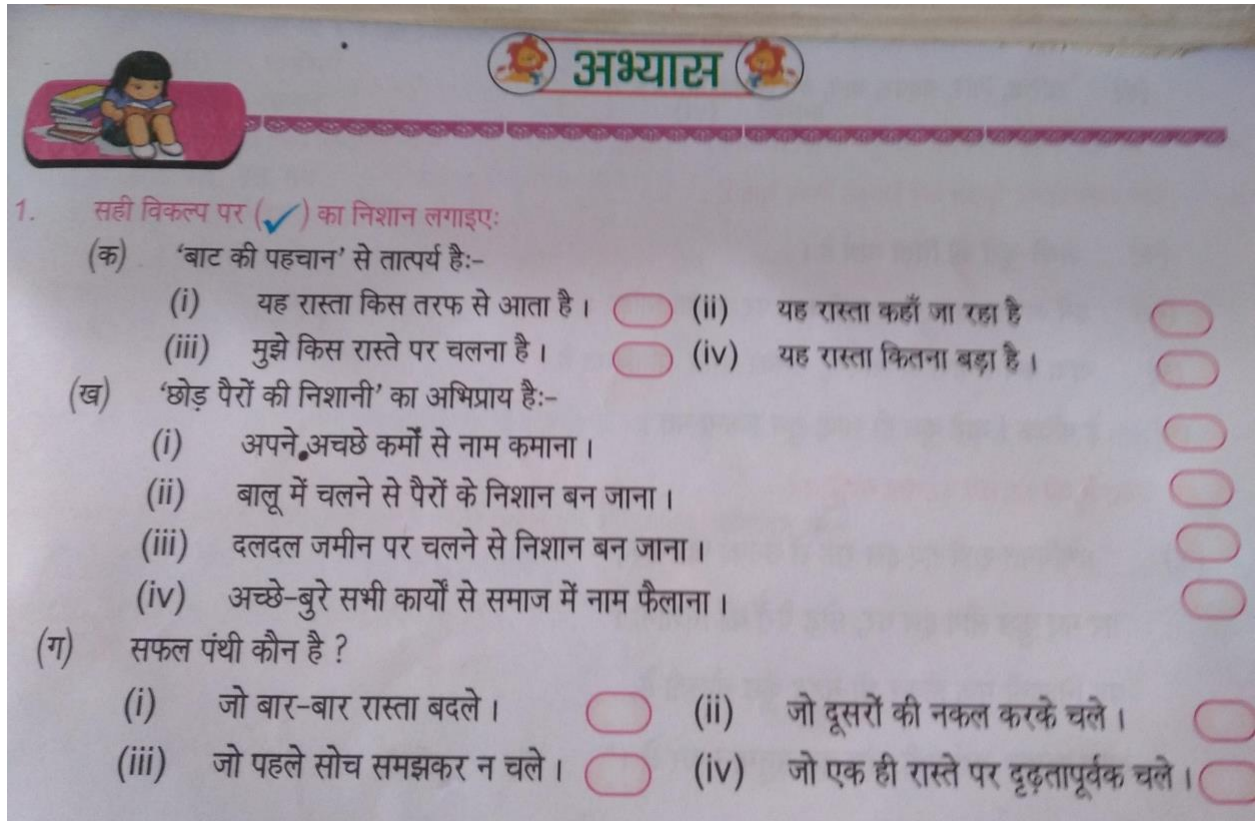 अभ्यास
1. सही विकल्प पर (✓) का निशान लगाइएः
(क) 'बाट की पहचान' से तात्पर्य हैः-
(i) यह रास्ता किस तरफ से आता है। (ii) यह रास्ता कहाँ जा रहा है
(iii) मुझे किस रास्ते पर चलना है। (iv) यह रास्ता कितना बड़ा है।
(ख) 'छोड़ पैरों की निशानी' का अभिप्राय हैः-
(i) अपने अचछे कर्मों से नाम कमाना।
(ii) बालू में चलने से पैरों के निशान बन जाना।
(iii) दलदल जमीन पर चलने से निशान बन जाना।
(iv) अच्छे-बुरे सभी कार्यों से समाज में नाम फैलाना।
(ग) सफल पंथी कौन है ?
(i) जो बार-बार रास्ता बदले। (ii) जो दूसरों की नकल करके चले।
(iii) जो पहले सोच समझकर न चले। (iv) जो एक ही रास्ते पर दृढ़तापूर्वक चले।